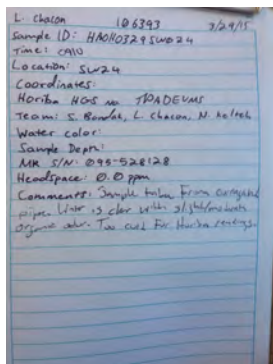 L. Chacon 106393 3/29/15
Sample ID: HA0H03295W024
Time: 0910
Location: SW24
Coordinates:
Horiba HGS no.
Team: S. L. Chacon, N.
Water color:
Sample Depth:
MR S/N: 095-528128
Headspace: 0.0 ppm
Comments: Sample taken From corrugated
pipe. Water is clear with slight/moderate
organic odor. Too cold For Horiba readings.